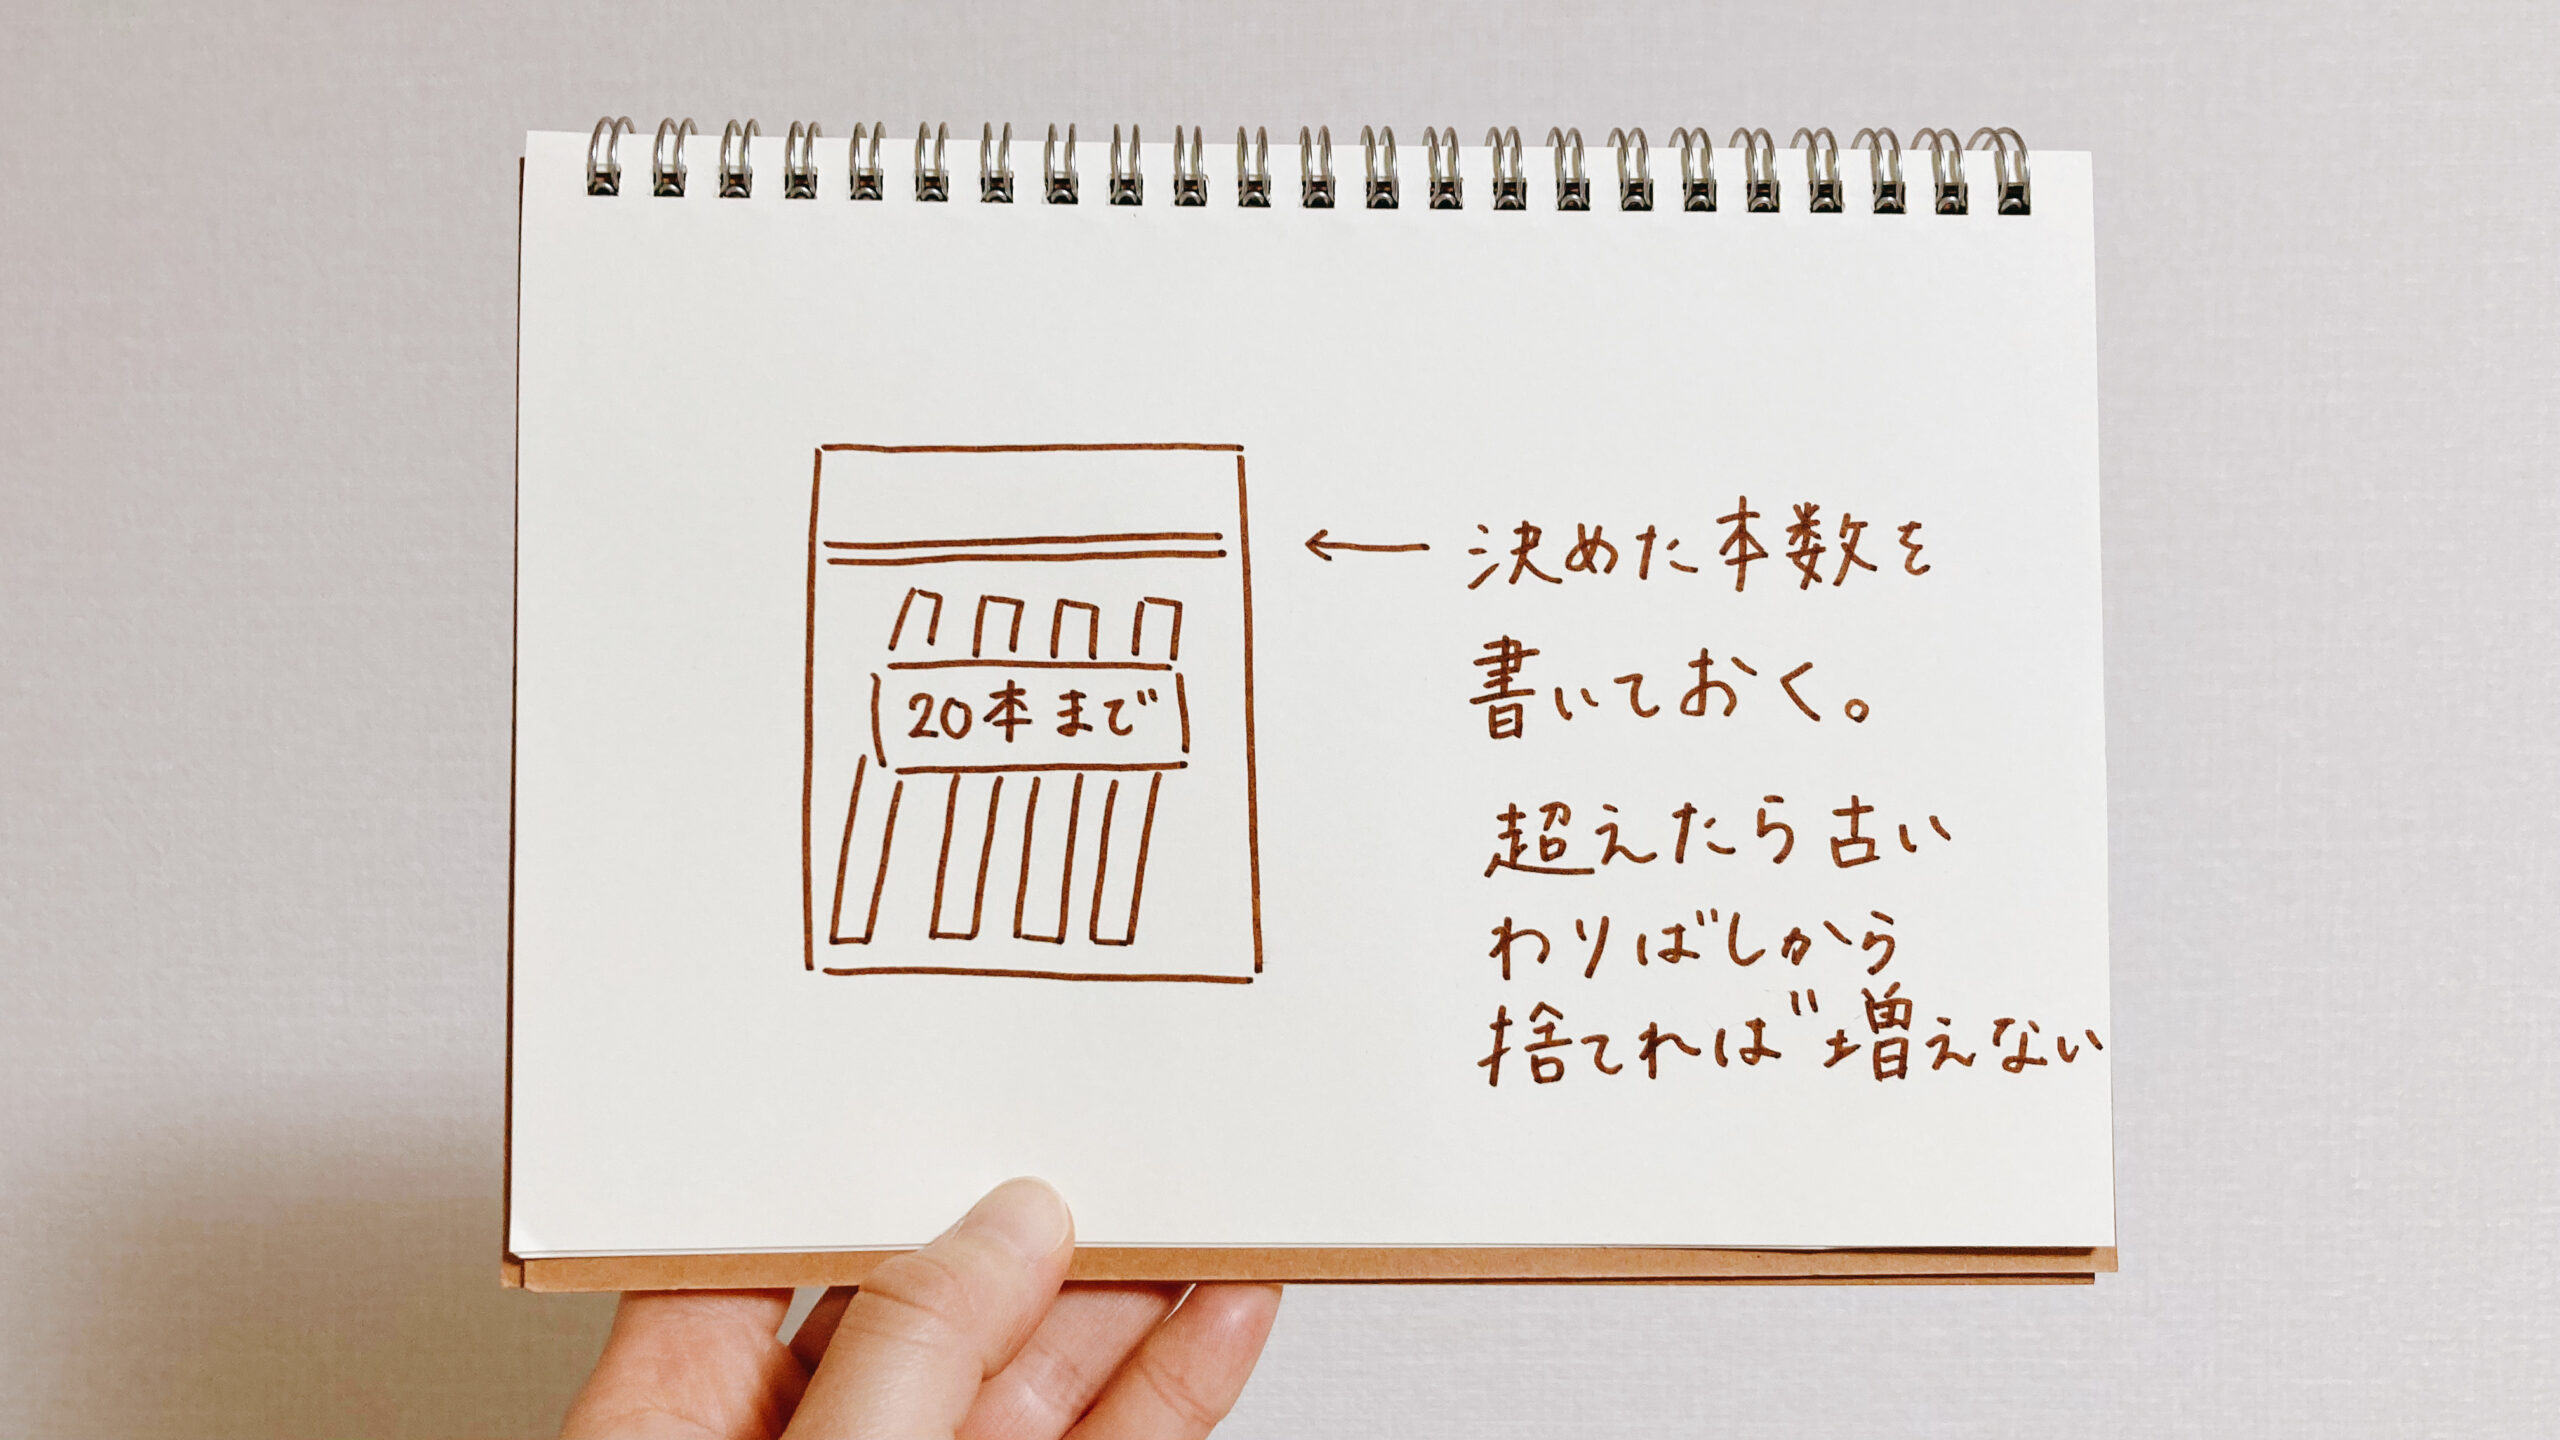 20本まで
← 決めた本数を
書いておく。
超えたら古い
わりばしから
捨てれば増えない